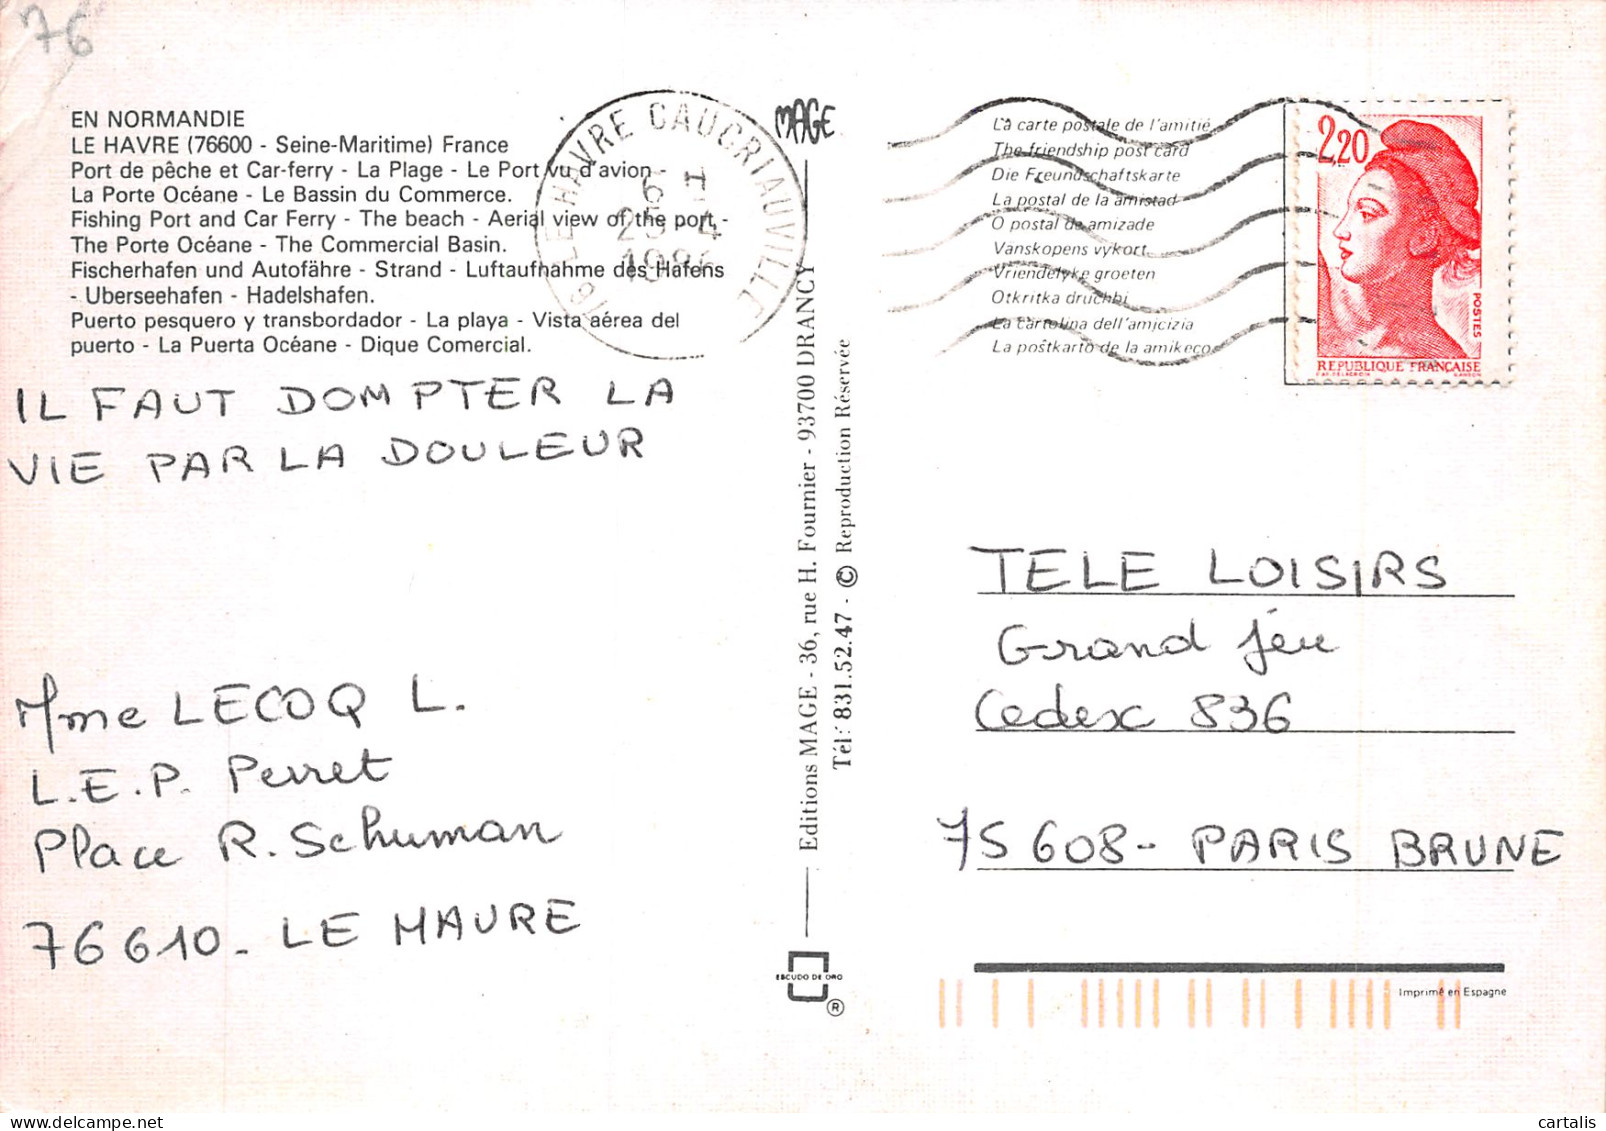 76
EN NORMANDIE
LE HAVRE (76600 - Seine-Maritime) France
Port de pêche et Car-ferry - La Plage - Le Port vu d'avion -
La Porte Océane - Le Bassin du Commerce.
Fishing Port and Car Ferry - The beach - Aerial view of the port -
The Porte Océane - The Commercial Basin.
Fischerhafen und Autofähre - Strand - Luftaufnahme des Hafens
- Uberseehafen - Hadelshafen.
Puerto pesquero y transbordador - La playa - Vista aérea del
puerto - La Puerta Océane - Dique Comercial.
IL FAUT DOMPTER LA
VIE PAR LA DOULEUR
Mme LECOQ L.
L.E.P. Perret
Place R. Schuman
76610 - LE HAVRE
76 LE HAVRE CAUCRIAUVILLE
6 H
25 - 4
MAGE
Editions MAGE - 36, rue H. Fournier - 93700 DRANCY
Tél: 831.52.47 - © Reproduction Réservée
ESCUDO DE ORO
®
La carte postale de l'amitié
The friendship post card
Die Freundschaftskarte
La postal de la amistad
O postal da amizade
Vanskopens vykort
Vriendelyke groeten
Otkritka druchbi
La cartolina dell'amicizia
La postkarto de la amikeco
2,20
POSTES
REPUBLIQUE FRANÇAISE
TELE LOISIRS
Grand jeu
Cedex 836
75608 - PARIS BRUNE
Imprimé en Espagne
cartalis